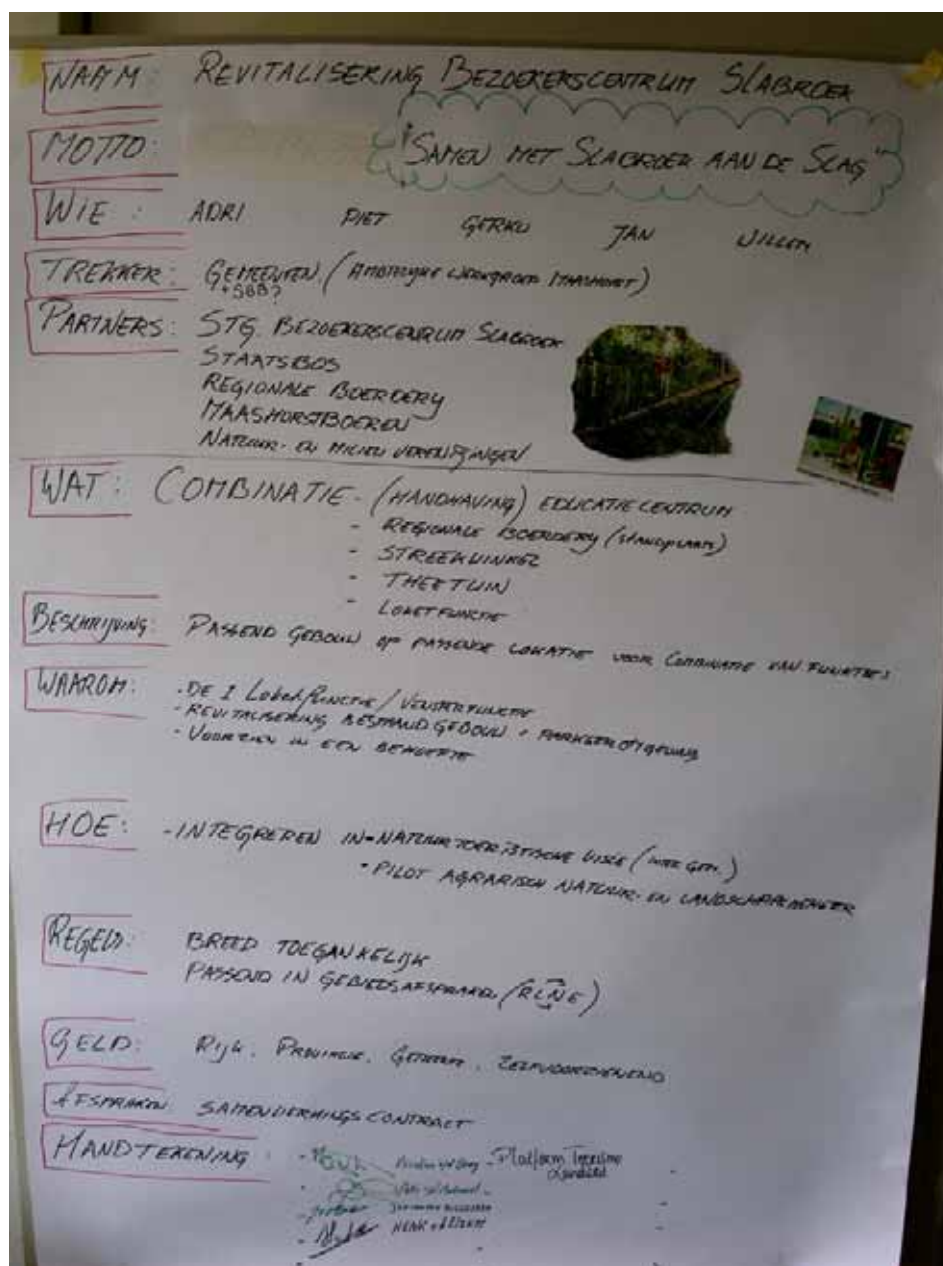 NAAM: REVITALISERING BEZOEKERSCENTRUM SLABROEK
MOTTO: "SAMEN MET SLABROEK AAN DE SLAG"
WIE: ADRI PIET GERKO JAN WILLEM
TREKKER: GEMEENTEN. (AMBTELIJKE WERKGROEP MAASHORST)
+ SBB?
PARTNERS: STG. BEZOEKERSCENTRUM SLABROEK
STAATSBOS
REGIONALE BOERDERIJ
MAASHORSTBOEREN
NATUUR- EN MILIEU VERENIGINGEN
WAT: COMBINATIE - (HANDHAVING) EDUCATIECENTRUM
- REGIONALE BOERDERIJ (STANDPLAATS)
- STREEKWINKEL
- THEETUIN
- LOKETFUNCTIE
BESCHRIJVING: PASSEND GEBOUW OP PASSENDE LOKATIE VOOR COMBINATIE VAN FUNCTIES
WAAROM: - DE 1 LOKETFUNCTIE / VENSTERFUNCTIE
- REVITALISERING BESTAAND GEBOUW
- VOORZIEN IN EEN BEHOEFTE
HOE: - INTEGREREN IN - NATUURTOERISTISCHE VISIE
- PILOT AGRARISCH NATUUR- EN LANDSCHAPSBEHEER
REGELS: BREED TOEGANKELIJK
PASSEND IN GEBIEDSAFSPRAKEN
GELD: RIJK, PROVINCIE, GEMEENTE, ZELFVOORZIENEND
AFSPRAKEN: SAMENWERKINGSCONTRACT
HANDTEKENING: Platform Toerisme
Landerd